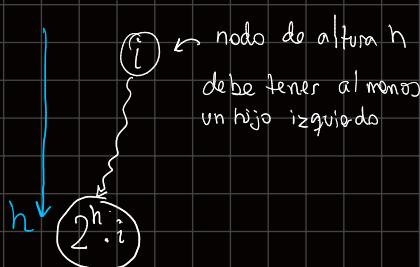 i
nodo de altura h
debe tener al menos
un hijo izquierdo
h
2^h · i